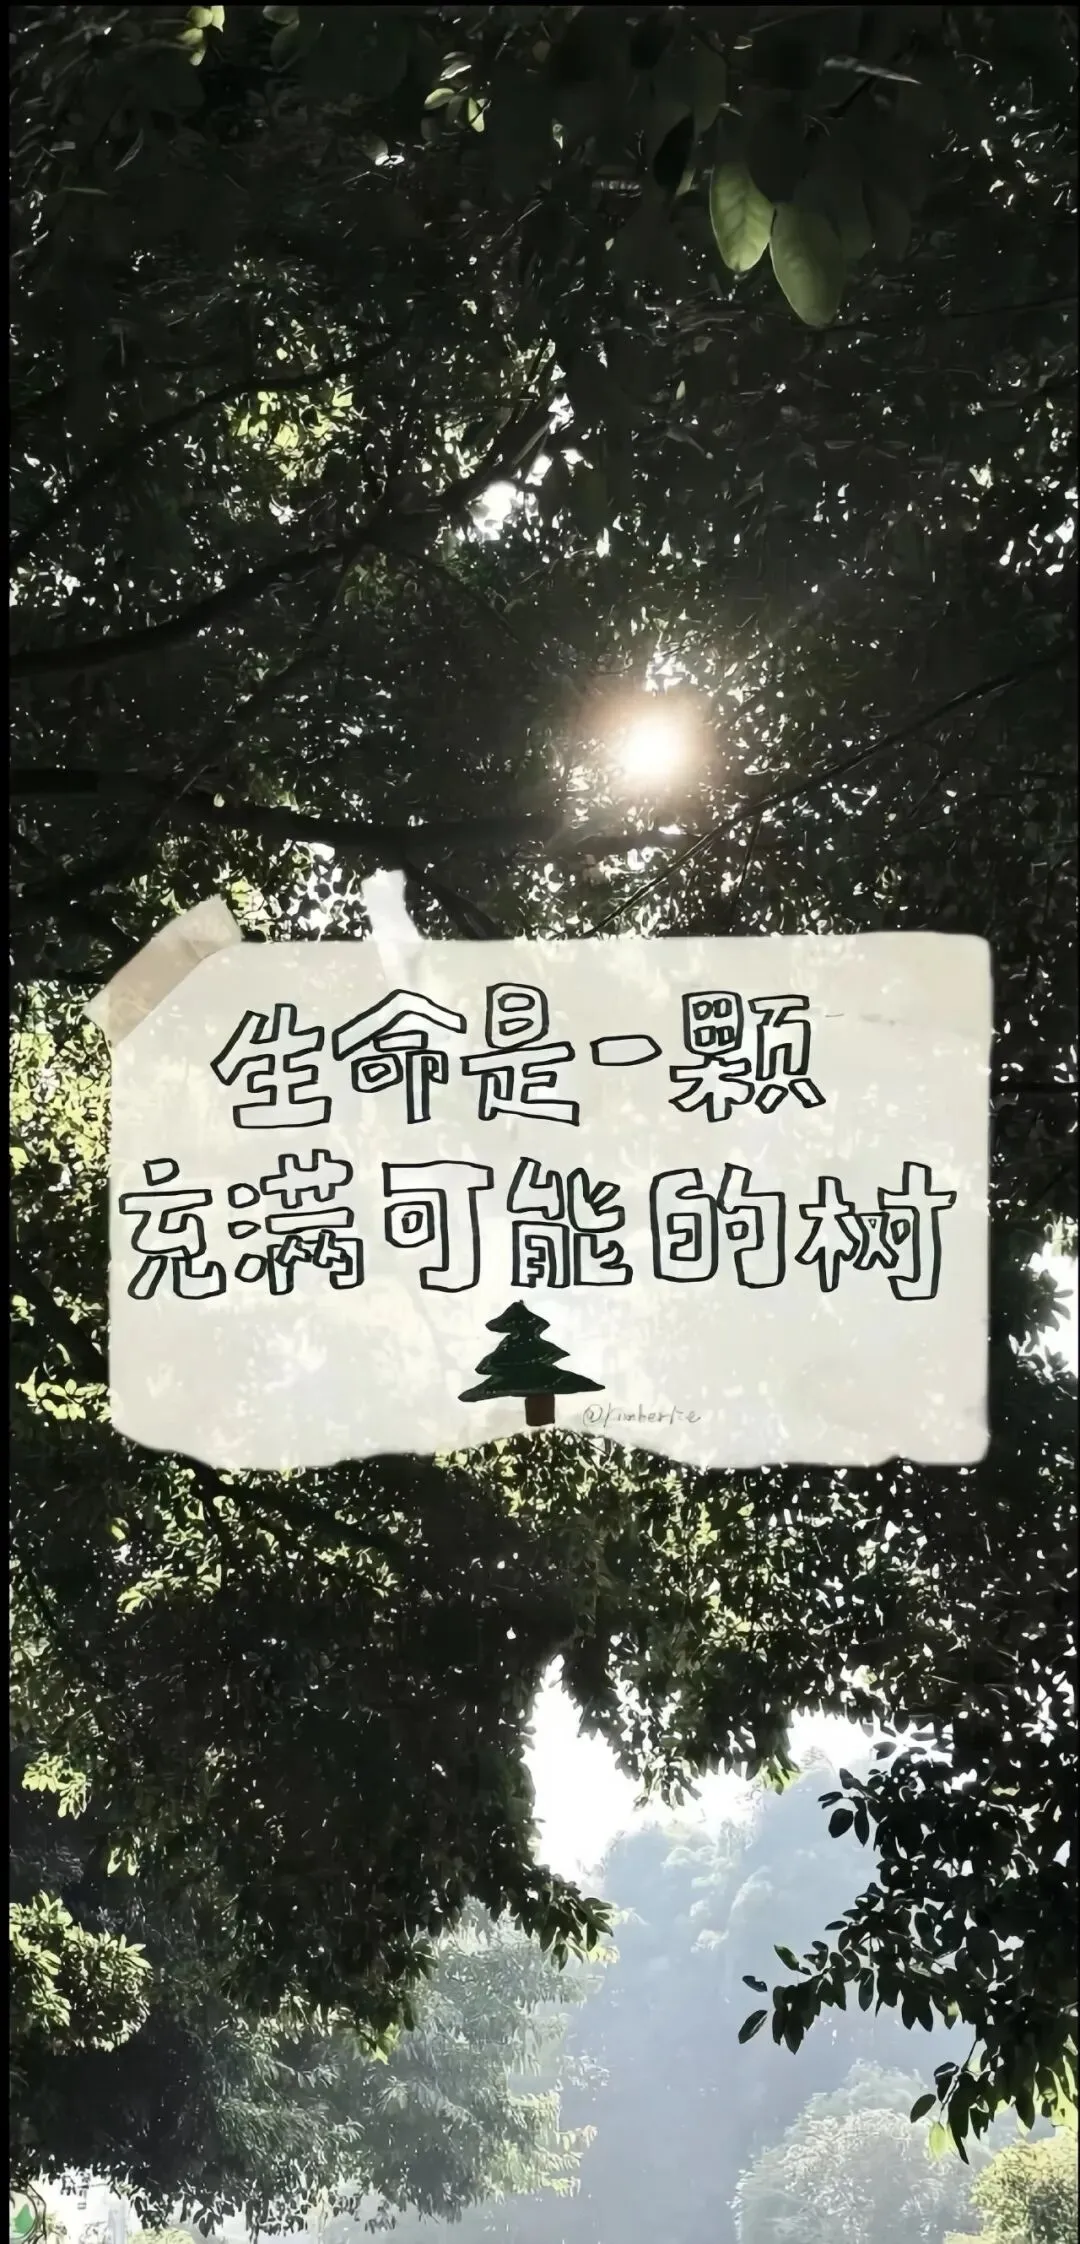 生命是一颗
充满可能的树
@Kimberlre